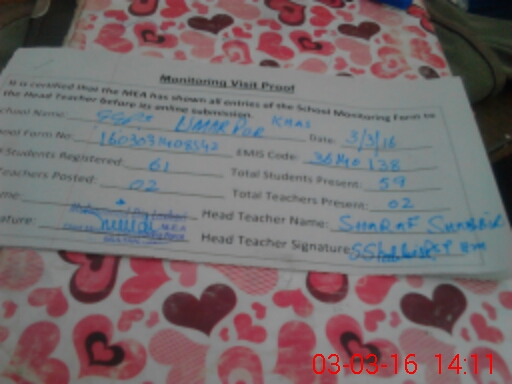 Monitoring Visit Proof
It is certified that the MEA has shown all entries of the School Monitoring Form to
the Head Teacher before its online submission.
chool Name: GGPS UMAR PUR KHAS Date: 3/3/16
ool Form No: EMIS Code: 36140138
Students Registered: 61 Total Students Present: 59
Teachers Posted: 02 Total Teachers Present: 02
me: Head Teacher Name: SHARAF
ature: Head Teacher Signature:
03-03-16 14:11